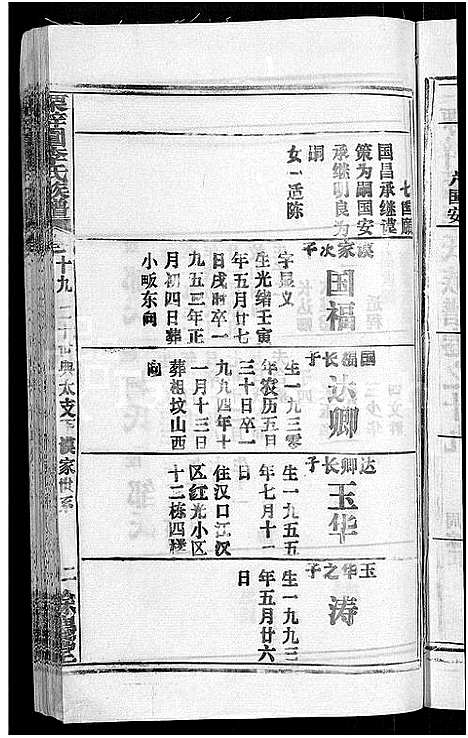 七国廉
国昌承继谟
策为嗣国安
承继明良为
嗣
女一适陈
谟家次子
国福
字显义
生光绪壬寅
年五月廿七
日戌时卒一
九五三年正
月初四日葬
小畈东向
国福长子
达卿
生一九三零
年农历五日
三十日卒一
九九四年十
一月十三日
葬祖坟山西
向
达卿长子
玉华
生一九五五
年七月十一
日
住汉口江汉
区红光小区
十二栋四楼
玉华之子
涛
生一九九三
年五月廿六
日
李氏族谱
卷之十九
世典太支下谟家世系
二
卢国安